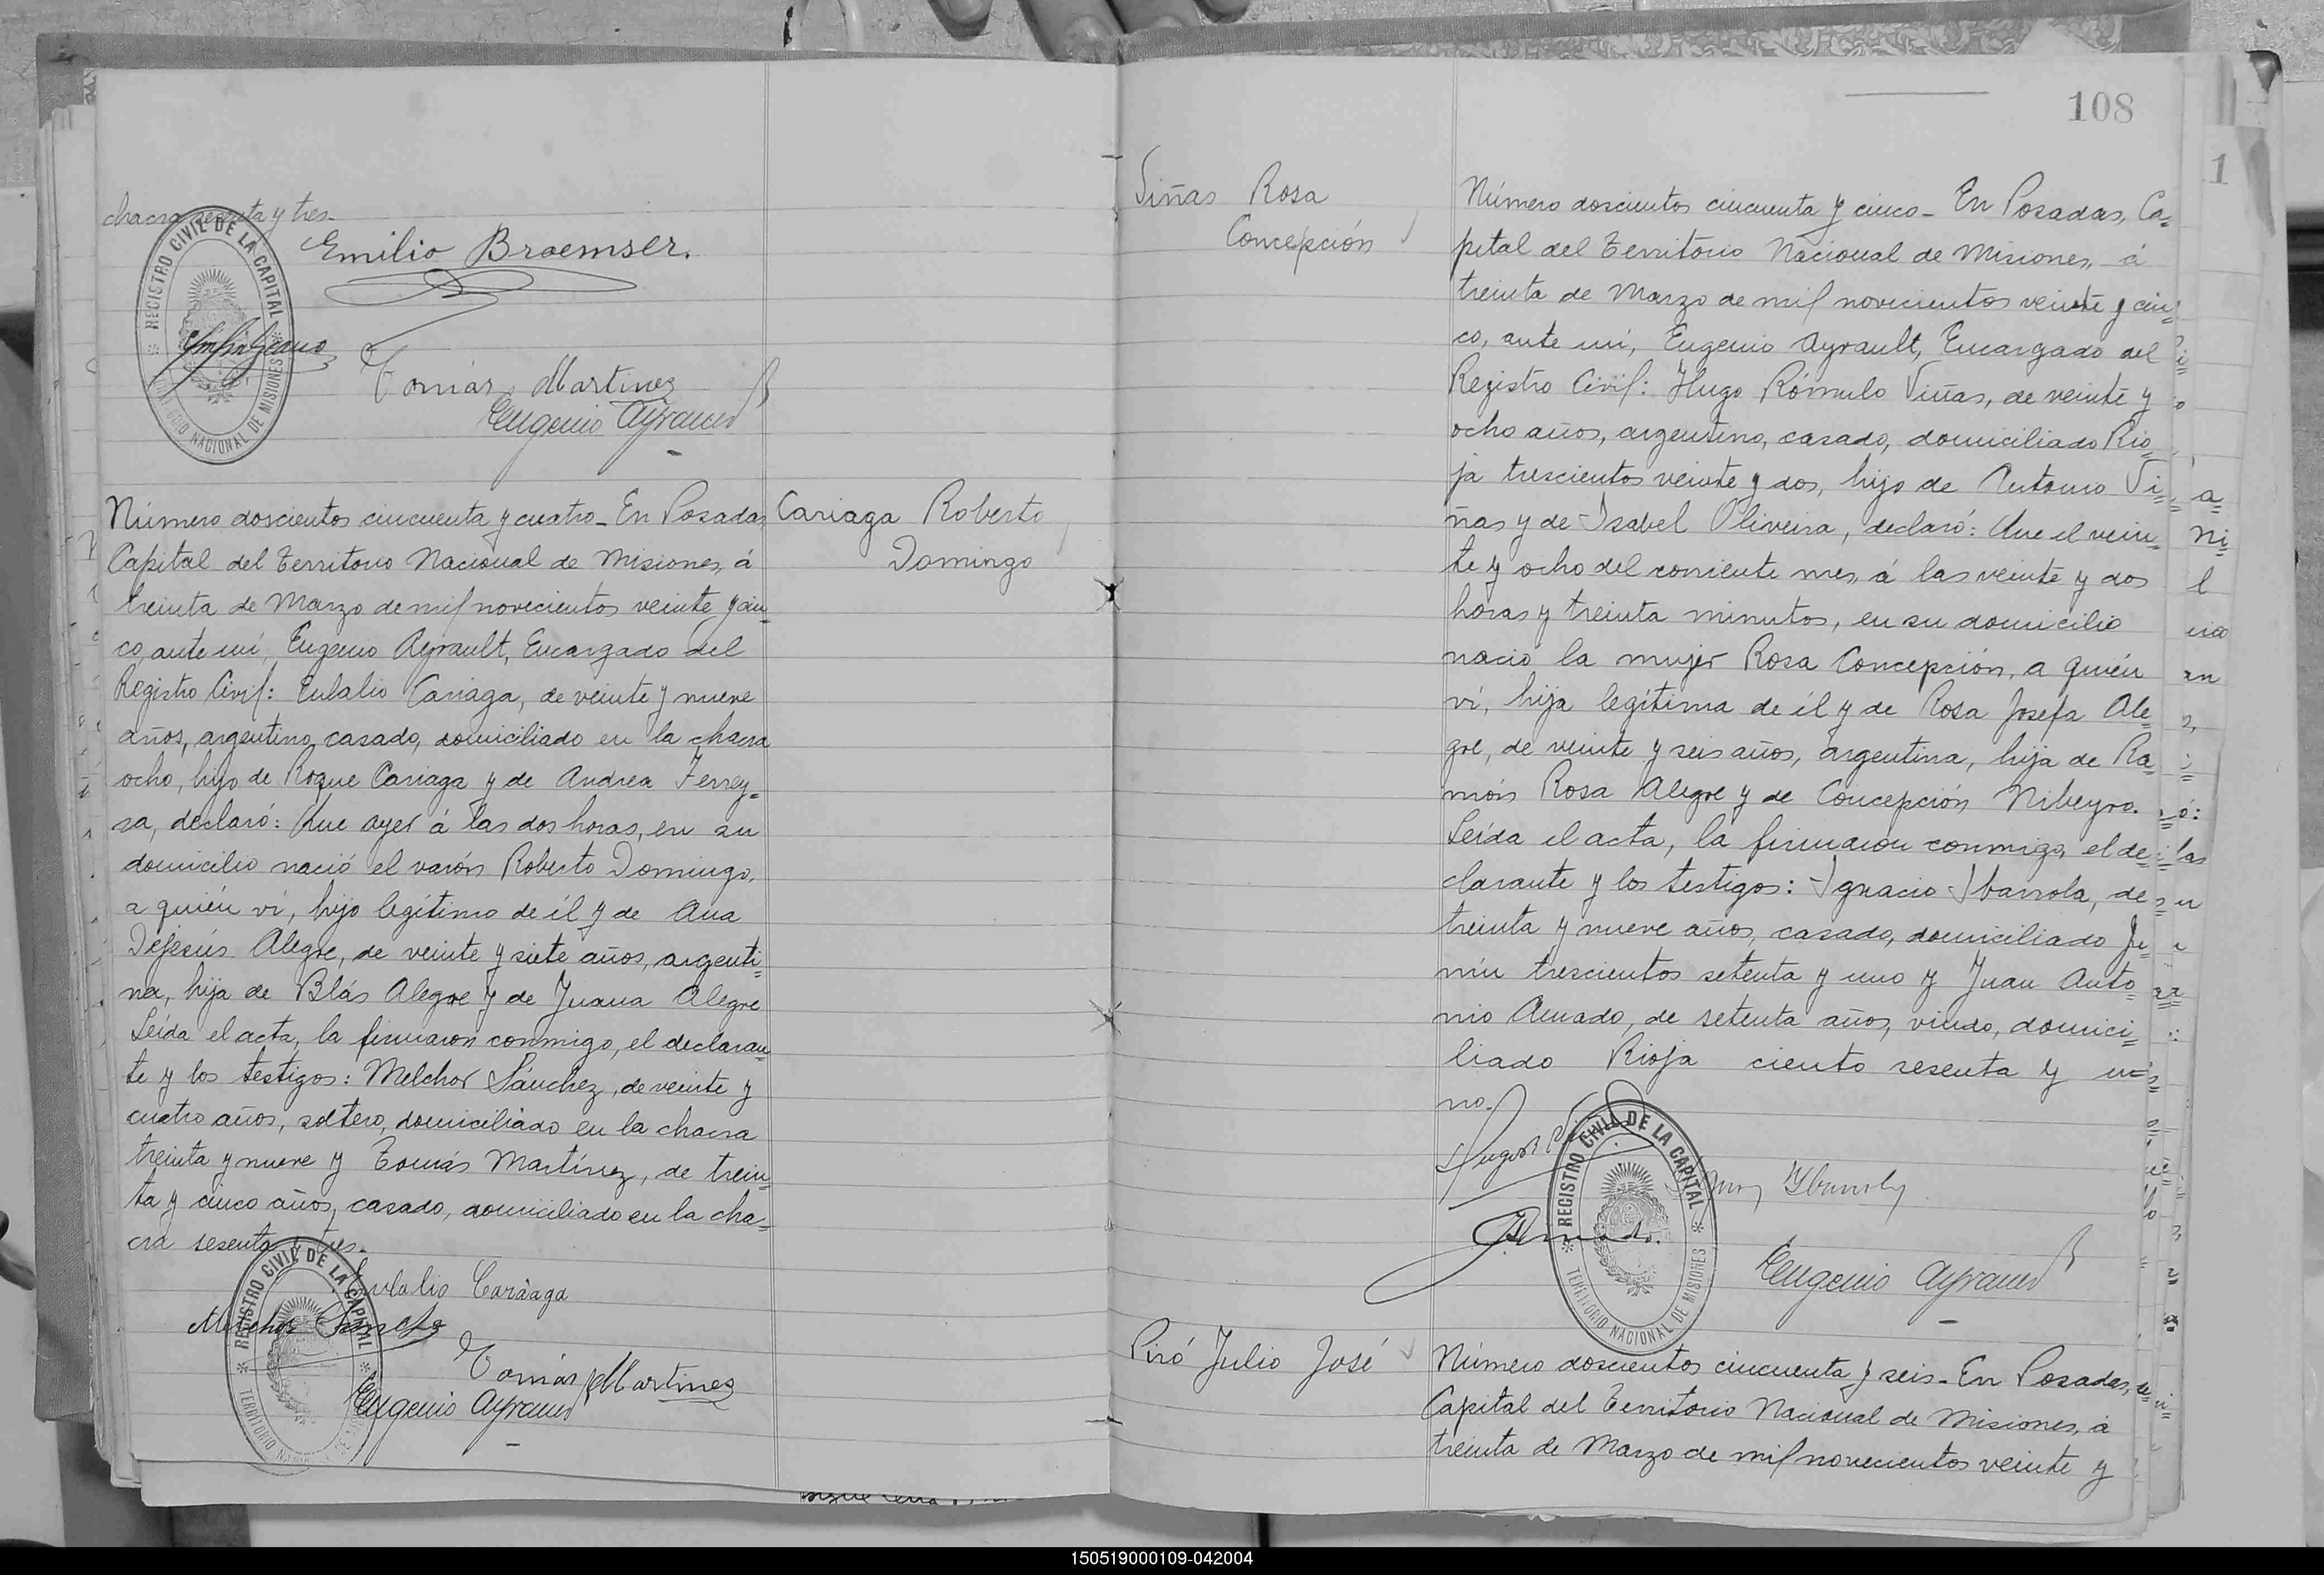 chacra sesenta y tres-
Emilio Braemser.
Tomás Martinez
Eugenio Ayrault
REGISTRO CIVIL DE LA CAPITAL
TERRITORIO NACIONAL DE MISIONES
Cariaga Roberto
Domingo
Número doscientos cincuenta y cuatro_ En Posadas
Capital del Territorio Nacional de Misiones, á
treinta de Marzo de mil novecientos veinte y cin=
co, ante mí, Eugenio Ayrault, Encargado del
Registro Civil: Eulalio Cariaga, de veinte y nueve
años, argentino, casado, domiciliado en la chacra
ocho, hijo de Roque Cariaga y de Andrea Ferrey=
ra, declaró: Que ayer á las dos horas, en su
domicilio nació el varón Roberto Domingo,
a quién ví, hijo legítimo de él y de Ana
Dejesús Alegre, de veinte y siete años, argenti=
na, hija de Blás Alegre y de Juana Alegre
Leída el acta, la firmaron conmigo, el declaran=
te y los testigos: Melchor Sánchez, de veinte y
cuatro años, soltero, domiciliado en la chacra
treinta y nueve y Tomás Martínez, de trein=
ta y cinco años, casado, domiciliado en la cha=
cra sesenta y tres-
Eulalio Cariaga
Melchor Sanchez
Tomás Martinez
Eugenio Ayrault
REGISTRO CIVIL DE LA CAPITAL
TERRITORIO NACIONAL DE MISIONES
108
1
Viñas Rosa
Concepción
Número doscientos cincuenta y cinco_ En Posadas, Ca=
pital del Territorio Nacional de Misiones, á
treinta de Marzo de mil novecientos veinte y cin=
co, ante mí, Eugenio Ayrault, Encargado del
Registro Civil: Hugo Rómulo Viñas, de veinte y
ocho años, argentino, casado, domiciliado Rio=
ja trescientos veinte y dos, hijo de Antonio Vi=
ñas y de Isabel Oliveira, declaró: Que el vein=
te y ocho del corriente mes, á las veinte y dos
horas y treinta minutos, en su domicilio
nació la mujer Rosa Concepción, a quién
ví, hija legítima de él y de Rosa Josefa Ale=
gre, de veinte y seis años, argentina, hija de Ra=
món Rosa Alegre y de Concepción Nibeyro.
Leída el acta, la firmaron conmigo, el de=
clarante y los testigos: Ignacio Ibarrola, de
treinta y nueve años, casado, domiciliado Ju=
nín trescientos setenta y uno y Juan Anto=
nio Amado, de setenta años, viudo, domici=
liado Rioja ciento sesenta y u=
no.
REGISTRO CIVIL DE LA CAPITAL
TERRITORIO NACIONAL DE MISIONES
Eugenio Ayrault
Piró Julio José
Número doscientos cincuenta y seis_ En Posadas,
Capital del Territorio Nacional de Misiones, á
treinta de Marzo de mil novecientos veinte y
150519000109-042004